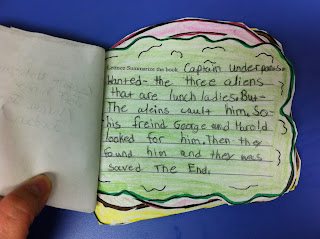 Lettuce Summarize the book Captain Underpants
Wanted- the three aliens
that are lunch ladies. But-
The aleins cault him. So-
his freind George and Harold
looked for him. Then they
found him and they was
saved The End.